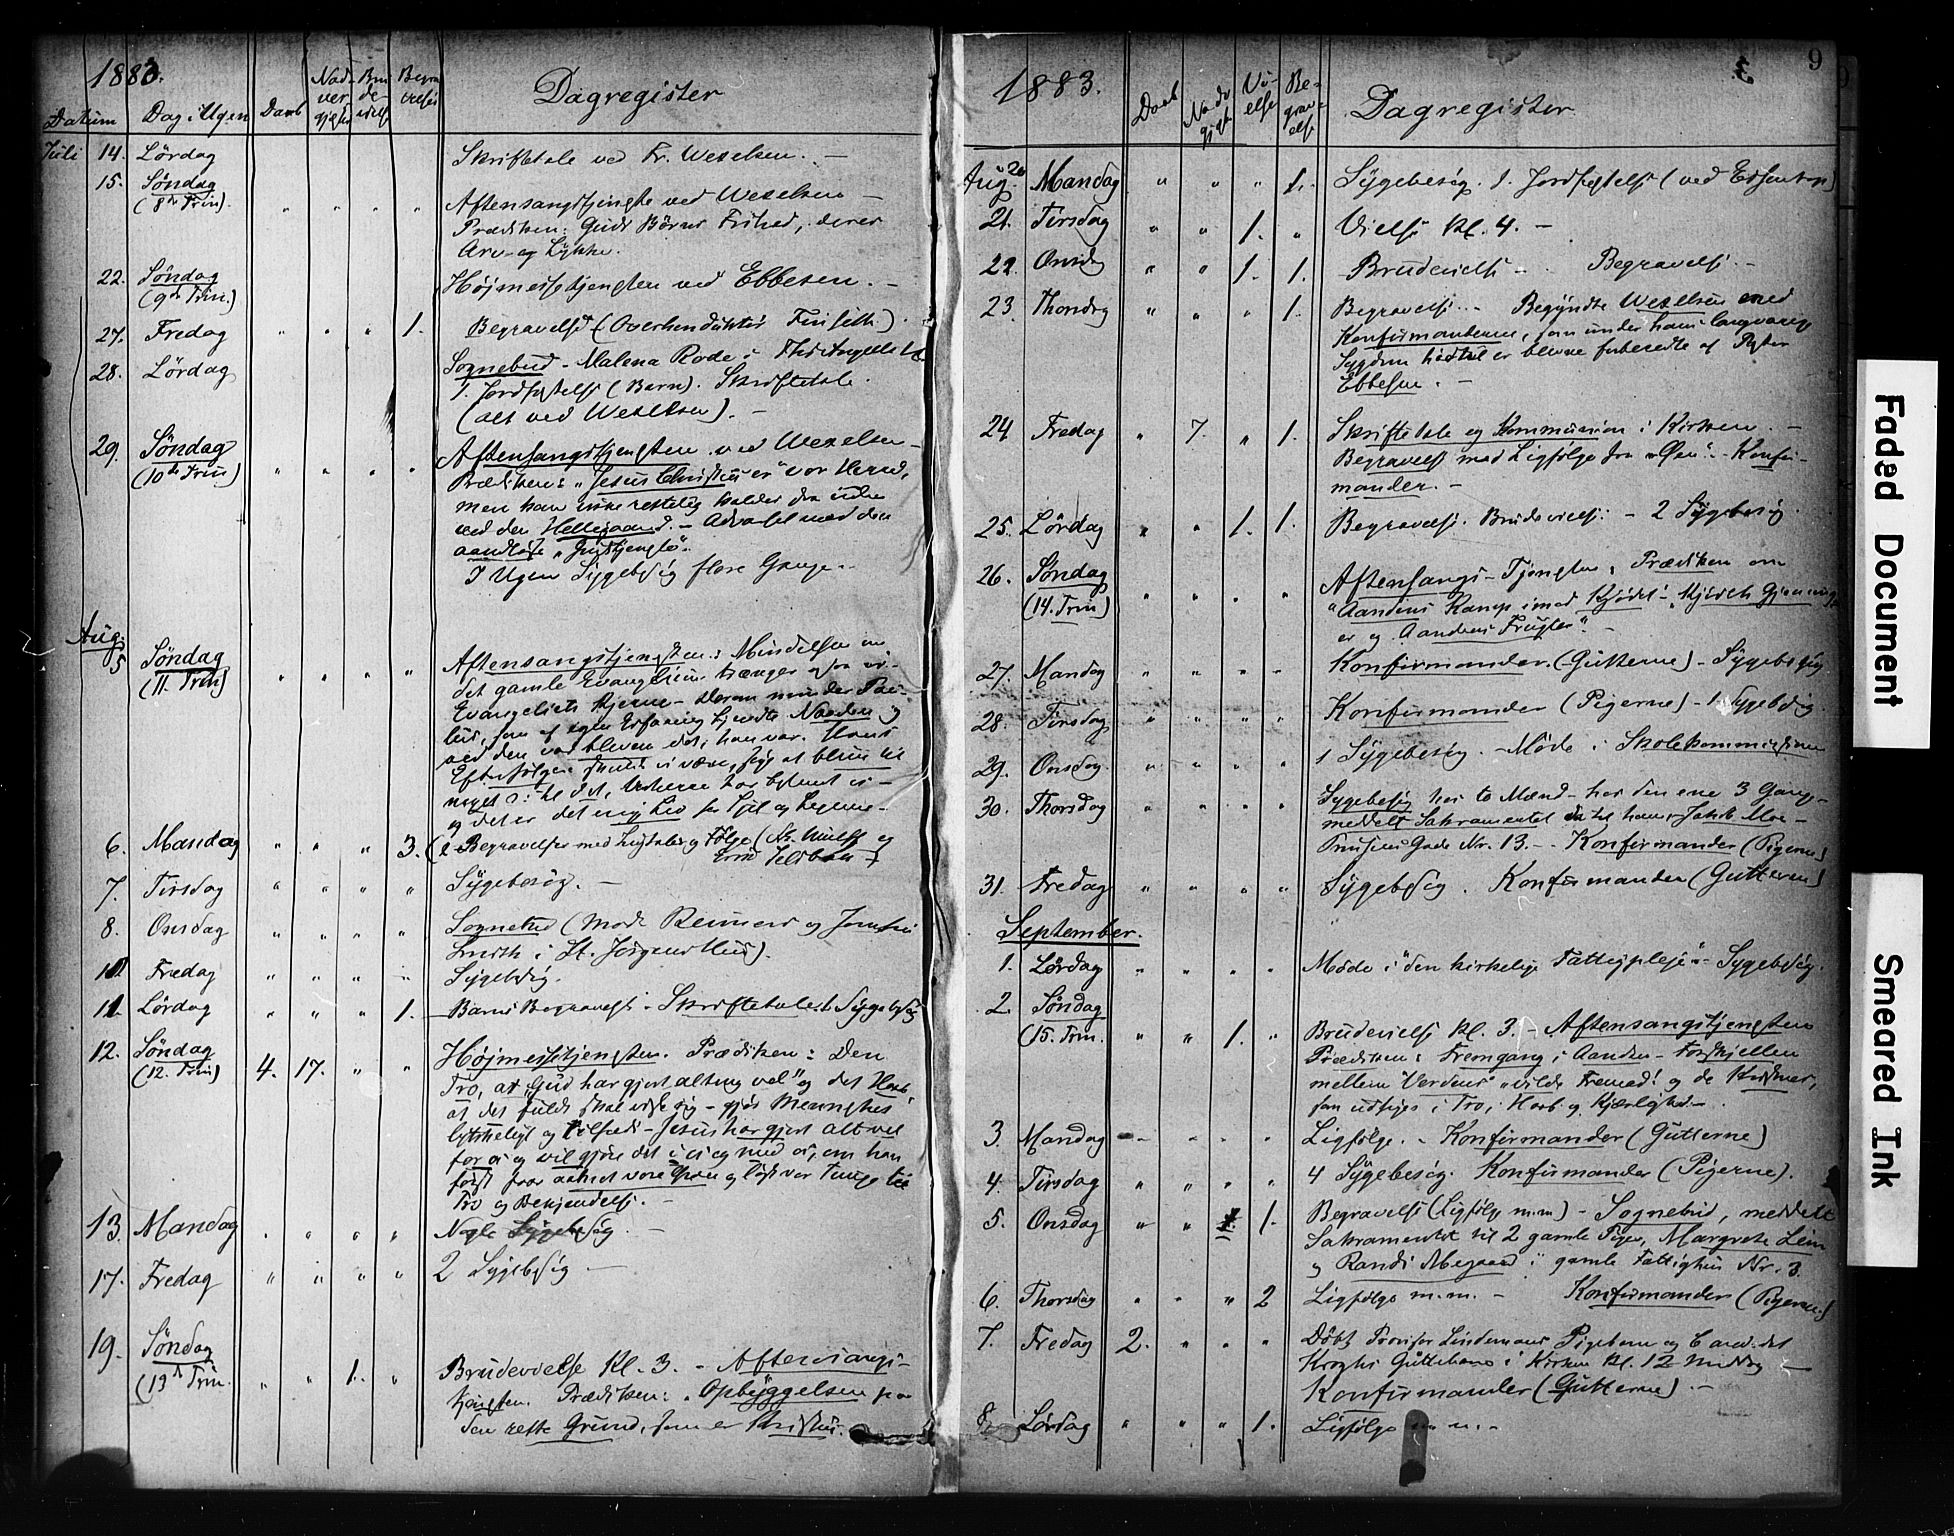 1883.
Datum Dag i Ugen Daab Nadvergjæster Brudevielse Begravelse Dagregister
Juli 14. Lördag Skriftetale ved Fr. Wexelsen. –
15. Söndag
(8de Trin). " " " " Aftensangstjeneste ved Wexelsen –
Prædiken: Guds Börns Frihed, deres
Arv og Lykke.
22. Söndag
(9de Trin.) Höjmessetjenesten ved Ebbesen. –
27. Fredag " " " 1. Begravelse (Overkonduktör Finseth).
28. Lördag Sognebud – Malena Rode i
1. Jordfæstelse (Barn). Skriftetale.
(alt ved Wexelsen). –
29. Söndag
(10de Trin) " " " " Aftensangstjenesten ved Wexelsen –
Prædiken: "Jesus Christus er" vor Herre,
men kan ikke rettelig kaldes den uden
ved den Helligaand. – Advarsel mod den
aandløse "Gudstjeneste".
I Ugen Sygebesög flere Gange. –
Aug.
5 Söndag
(11. Trin) " " " " Aftensangstjenesten: Mindelsen om
det gamle Evangelium trænges ogsaa
Evangeliets Kjerne – Derom minder Pau-
lus, som af egen Erfaring kjendte Naaden og
ved den var bleven det, han var. Hans
Efterfölgere skulle vi være,
og det er det evige Liv for Sjæl og Legeme –
6. Mandag " " " 3. (2 Begravelser med Ligtaler og Fölge
7. Tirsdag " " " " Sygebesög. –
8. Onsdag " " " " Sognebud (Mad. Reimers og Jomfru
Smith i St. Jörgens Hus).
10 Fredag " " " " Sygebesög.
11. Lördag " " " 1. Barns Begravelse – Skriftetale. 1 Sygebesög
12. Söndag
(12. Trin) 4. 17. " " Höjmessetjenesten. Prædiken: Den
Tro, at "Gud har gjort alting vel" og det Haab,
at det fuldt skal vise sig – gjör Mennesket
lykkeligt og tilfreds – Jesus har gjort alt vel
for os og vil gjöre det i os og med os, om han
först faar aabnet vore Ören og löst vor Tunge til
Tro og Bekjendelse. –
13. Mandag " " " " Nogle Sygebesög. –
17. Fredag " " " " 2 Sygebesög –
19. Söndag
(13de Trin. " " 1. " Brudevielse Kl. 3. – Aftensangs-
tjenesten. Prædiken: "Opbyggelsen paa
den rette Grund, som er Christus.
9
3
1883. Daab Nadvgjest Vi-
else Be-
grav-
else Dagregister
Aug. 20 Mandag " " " 1. Sygebesög. 1. Jordfæstelse (ved Essendrop)
21. Tirsdag " " 1. " Vielse Kl. 4. –
22. Onsdg " " 1. 1. Brudevielse – Begravelse –
23. Thorsdag " " " 1. Begravelse – Begyndte Wexelsen med
Konfirmanderne, som under hans langvarige
Sygdom hidtil er blevne forberedte af Pastor
Ebbesen. –
24 Fredag " 7. " 1. Skriftetale og Kommunion i Kirken. –
Begravelse med Ligfölge fra "Øen". – Konfir-
mander. –
25. Lördag " " 1. 1. Begravelse. Brudevielse: – 2 Sygebesög.
26. Söndag
(14. Trin) " " " " Aftensangs-Tjenesten: Prædiken om
"Aandens Kamp imod Kjödet" – "Kjödets Gjerninger
er og Aandens Frugter". –
27. Mandag " " " " Konfirmander. (Gutterne) – Sygebesög
28. Tirsdag " " " " Konfirmander (Pigerne) – 1 Sygebesög.
29. Onsdag. " " " " 1 Sygebesög. – Möde i Skolekommissionen
30. Thorsdag " " " " Sygebesög hos to Mænd – hos den ene 3 Gange –
meddelt Sakramentet til ham, Jakob Moe –
Gade Nr. 13. – Konfirmander (Pigerne)
31. Fredag " " " " Sygebesög. Konfirmander (Gutterne)
September.
1. Lördag " " " " Möde i "den kirkelige Fattigpleje" – Sygebesög.
2. Söndag
(15. Trin. " " 1. " Brudevielse Kl. 3. – Aftensangstjenesten
Prædiken: Fremgang i Aanden – Forskjellen
mellem Verdens "vilde Fremad! og de Kristnes,
som udsiges i Tro, i Haab og Kjærlighed. –
3. Mandag " " " " Ligfölge. – Konfirmander (Gutterne)
4. Tirsdag " " " " 4 Sygebesög. Konfirmander (Pigerne).
5. Onsdag " " 1. Begravelse (Ligfölge m.m) – Sognebud, meddelt
Sakramentet til 2 gamle Piger, Margrete Lein
og Randi i gamle Fattighus Nr. 3.
6. Thorsdag " " " 2 Ligfölge m.m. – Konfirmander (Pigerne.)
7. Fredag 2. " " " Döbt Provisor Lindemans Pigebarn og Cand.
Kroghs Guttebarn i Kirken Kl. 12 Middag –
Konfirmander (Gutterne) –
8. Lördag " " " 1. Ligfölge m.m. –
Faded Document
Smeared Ink